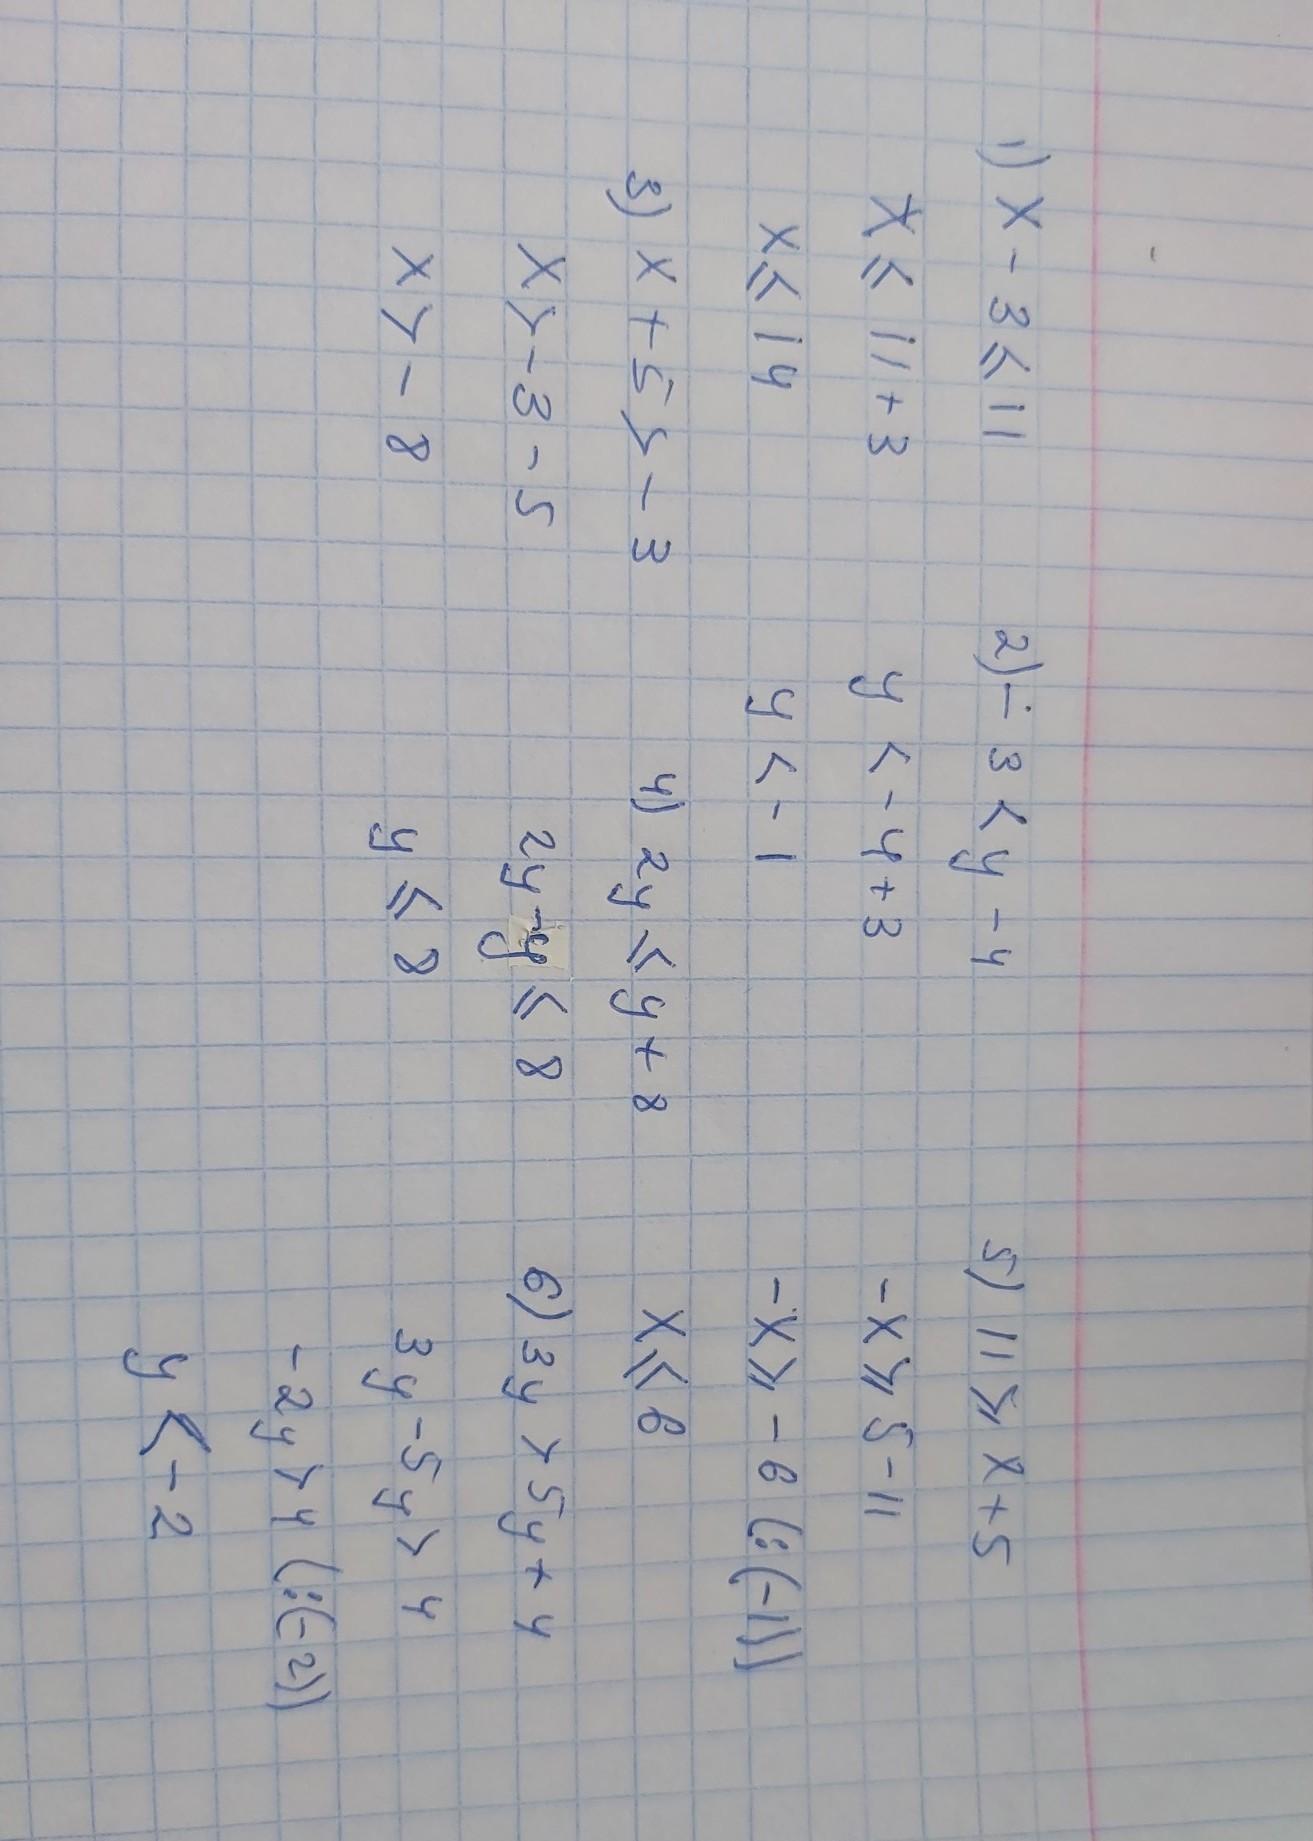 1) x - 3 ⩽ 11
x ⩽ 11 + 3
x ⩽ 14
2) - 3 < y - 4
y < - 4 + 3
y < - 1
3) x + 5 > - 3
x > - 3 - 5
x > - 8
4) 2y ⩽ y + 8
2y - y ⩽ 8
y ⩽ 8
5) 11 ⩾ x + 5
-x ⩾ 5 - 11
-x ⩾ - 6 (:(-1))
x ⩽ 6
6) 3y > 5y + 4
3y - 5y > 4
- 2y > 4 (:(-2))
y < - 2